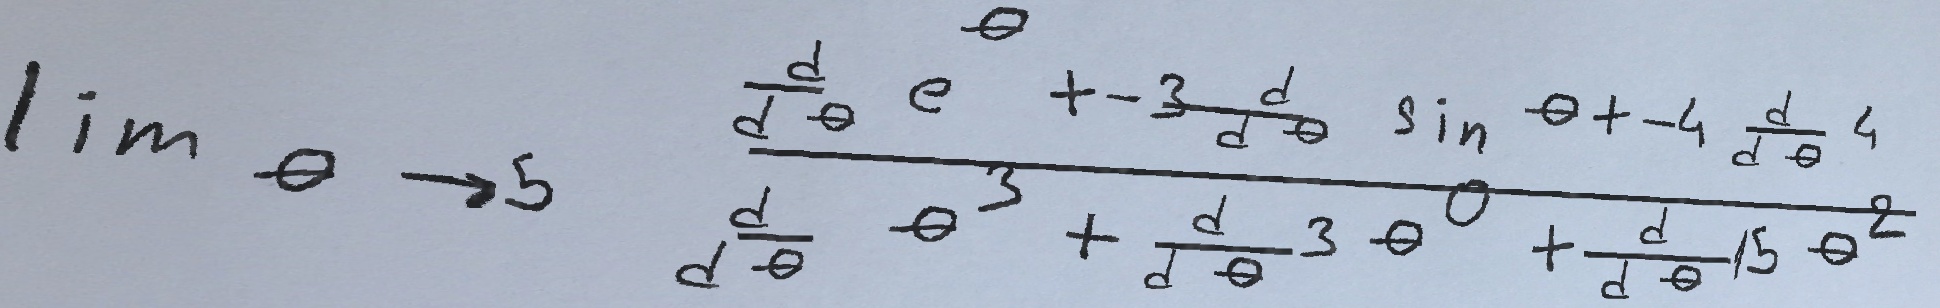 \lim_{\theta \to 5} \frac{\frac{d}{d\theta} e^{\theta} + -3 \frac{d}{d\theta} \sin \theta + -4 \frac{d}{d\theta} 4}{\frac{d}{d\theta} \theta^{3} + \frac{d}{d\theta} 3 \theta^{0} + \frac{d}{d\theta} 15 \theta^{2}}